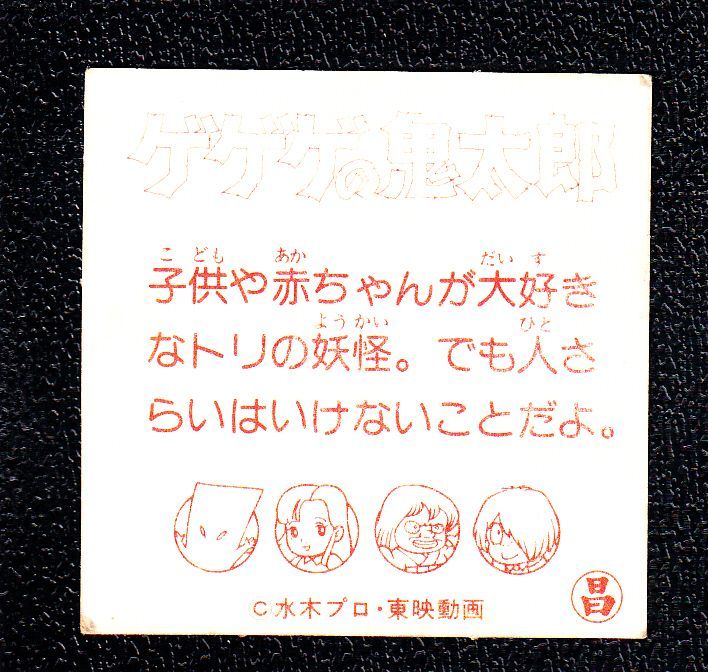 ゲゲゲの鬼太郎
こども あか だいす
子供や赤ちゃんが大好き
ようかい ひと
なトリの妖怪。でも人さ
らいはいけないことだよ。
C水木プロ・東映動画
昌